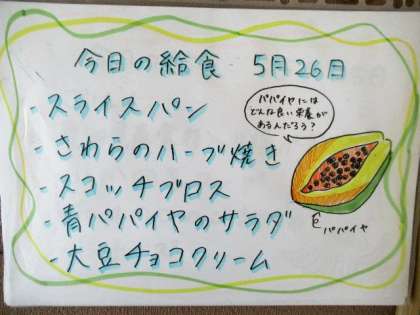 今日の給食 5月26日
-スライスパン
-さわらのハーブ焼き
-スコッチブロス
-青パパイヤのサラダ
-大豆チョコクリーム
パパイヤには
どんな良い栄養が
あるんだろう?
パパイヤ